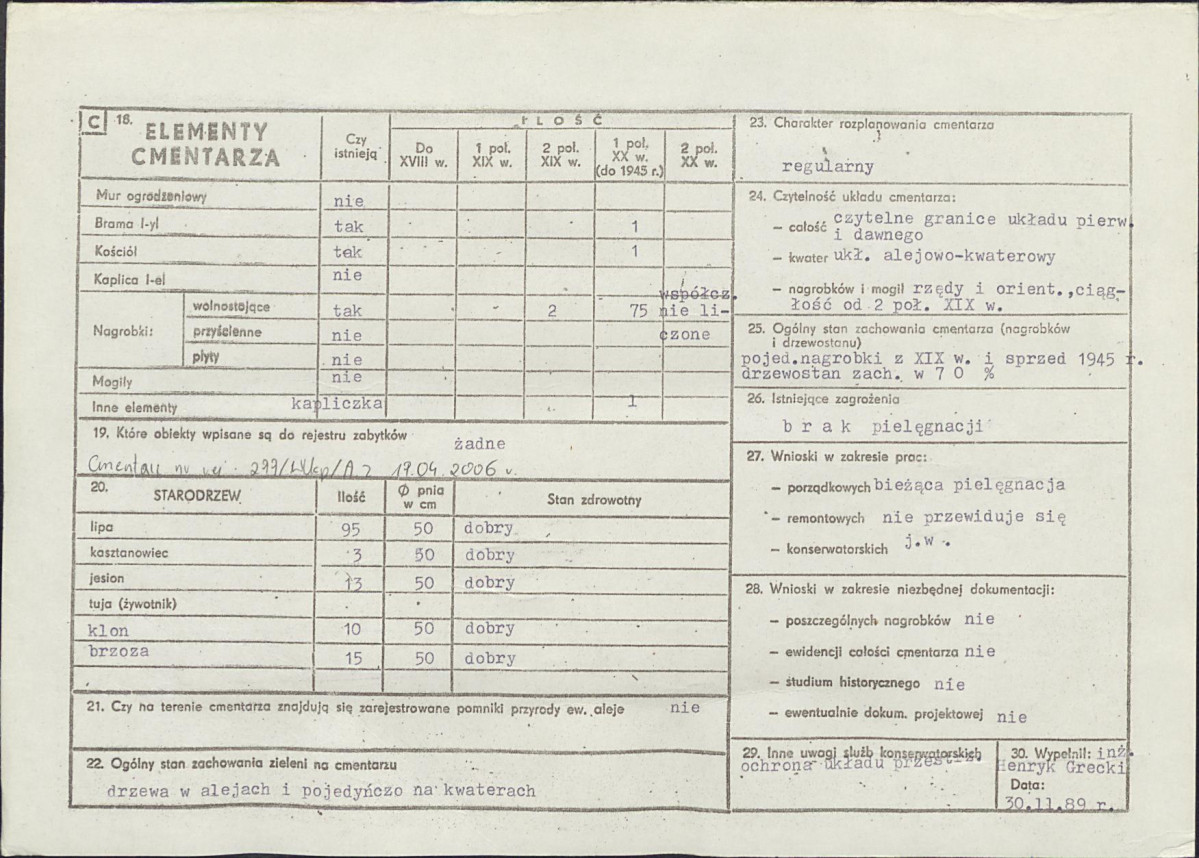 C 18. ELEMENTY CMENTARZA
Czy istnieją
ILOŚĆ
Do XVIII w.
1 poł. XIX w.
2 poł. XIX w.
1 poł. XX w. (do 1945 r.)
2 poł. XX w.
Mur ogrodzeniowy nie
Brama I-yl tak 1
Kościół tak 1
Kaplica I-el nie
Nagrobki:
wolnostojące tak 2 75 współcz. nie li-
przyścienne nie czone
płyty nie
Mogiły nie
Inne elementy kapliczka 1
19. Które obiekty wpisane są do rejestru zabytków żadne
Cmentarz nr rej. 299/Wlkp/A z 19.04.2006 r.
20. STARODRZEW Ilość Ø pnia w cm Stan zdrowotny
lipa 95 50 dobry
kasztanowiec 3 50 dobry
jesion 13 50 dobry
tuja (żywotnik)
klon 10 50 dobry
brzoza 15 50 dobry
21. Czy na terenie cmentarza znajdują się zarejestrowane pomniki przyrody ew. aleje nie
22. Ogólny stan zachowania zieleni na cmentarzu
drzewa w alejach i pojedyńczo na kwaterach
23. Charakter rozplanowania cmentarza
regularny
24. Czytelność układu cmentarza:
– całość czytelne granice układu pierw.
i dawnego
– kwater ukł. alejowo-kwaterowy
– nagrobków i mogił rzędy i orient.,ciąg-
łość od 2 poł. XIX w.
25. Ogólny stan zachowania cmentarza (nagrobków
i drzewostanu)
pojed.nagrobki z XIX w. i sprzed 1945 r.
drzewostan zach. w 7 0 %
26. Istniejące zagrożenia
b r a k pielęgnacji
27. Wnioski w zakresie prac:
– porządkowych bieżąca pielęgnacja
– remontowych nie przewiduje się
– konserwatorskich j.w.
28. Wnioski w zakresie niezbędnej dokumentacji:
– poszczególnych nagrobków nie
– ewidencji całości cmentarza nie
– studium historycznego nie
– ewentualnie dokum. projektowej nie
29. Inne uwagi służb konserwatorskich
ochrona układu przestrz.
30. Wypełnił: inż.
Henryk Grecki
Data:
30.11.89 r.